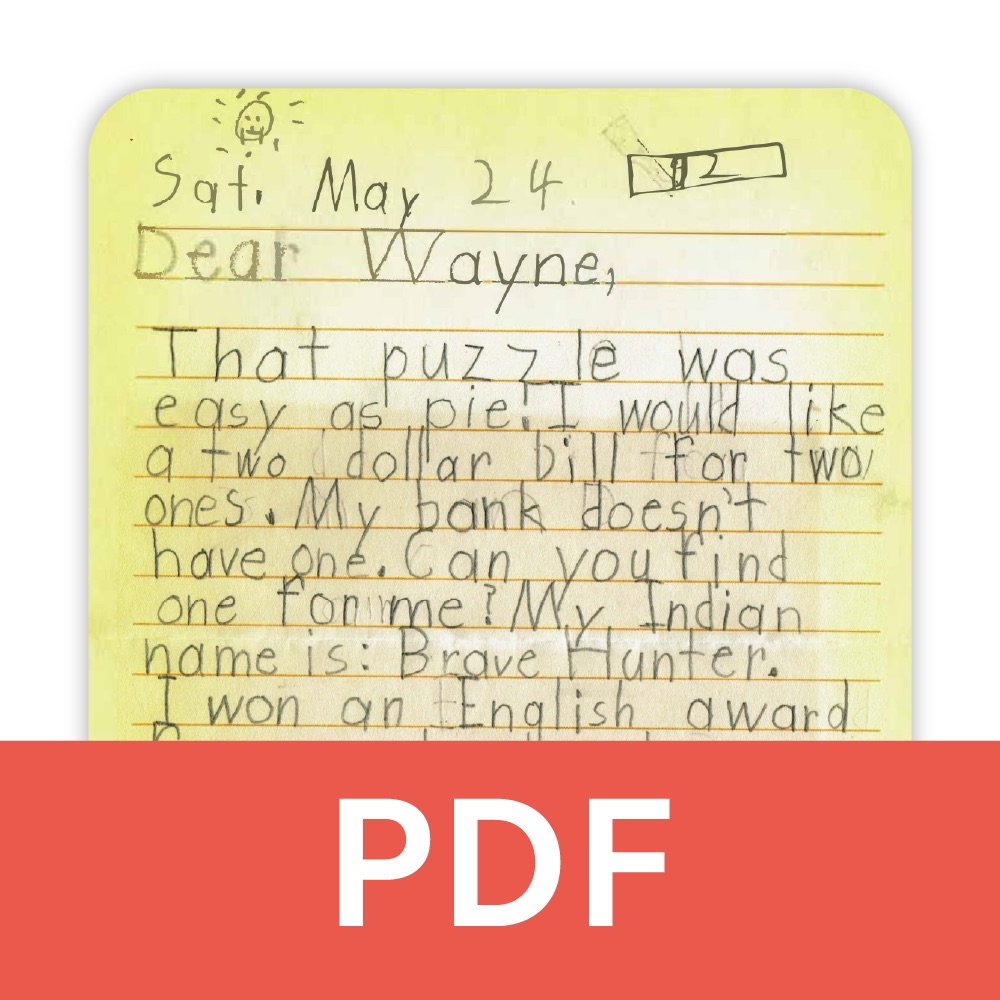 Sat. May 24.
2
Dear Wayne,
That puzzle was
easy as pie! I would like
a two dollar bill for two
ones. My bank doesn't
have one. Can you find
one for me? My Indian
name is: Brave Hunter.
I won an English award
PDF